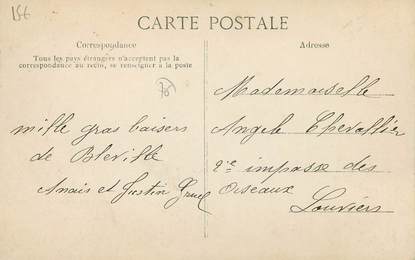 156
CARTE POSTALE
Correspondance
Tous les pays étrangers n'acceptent pas la
correspondance au recto, se renseigner à la poste
Adresse
78
mille gros baisers
de Bléville
Anais et Justin
Mademoiselle
Angele Chevallier
impasse des
Oiseaux
Louviers